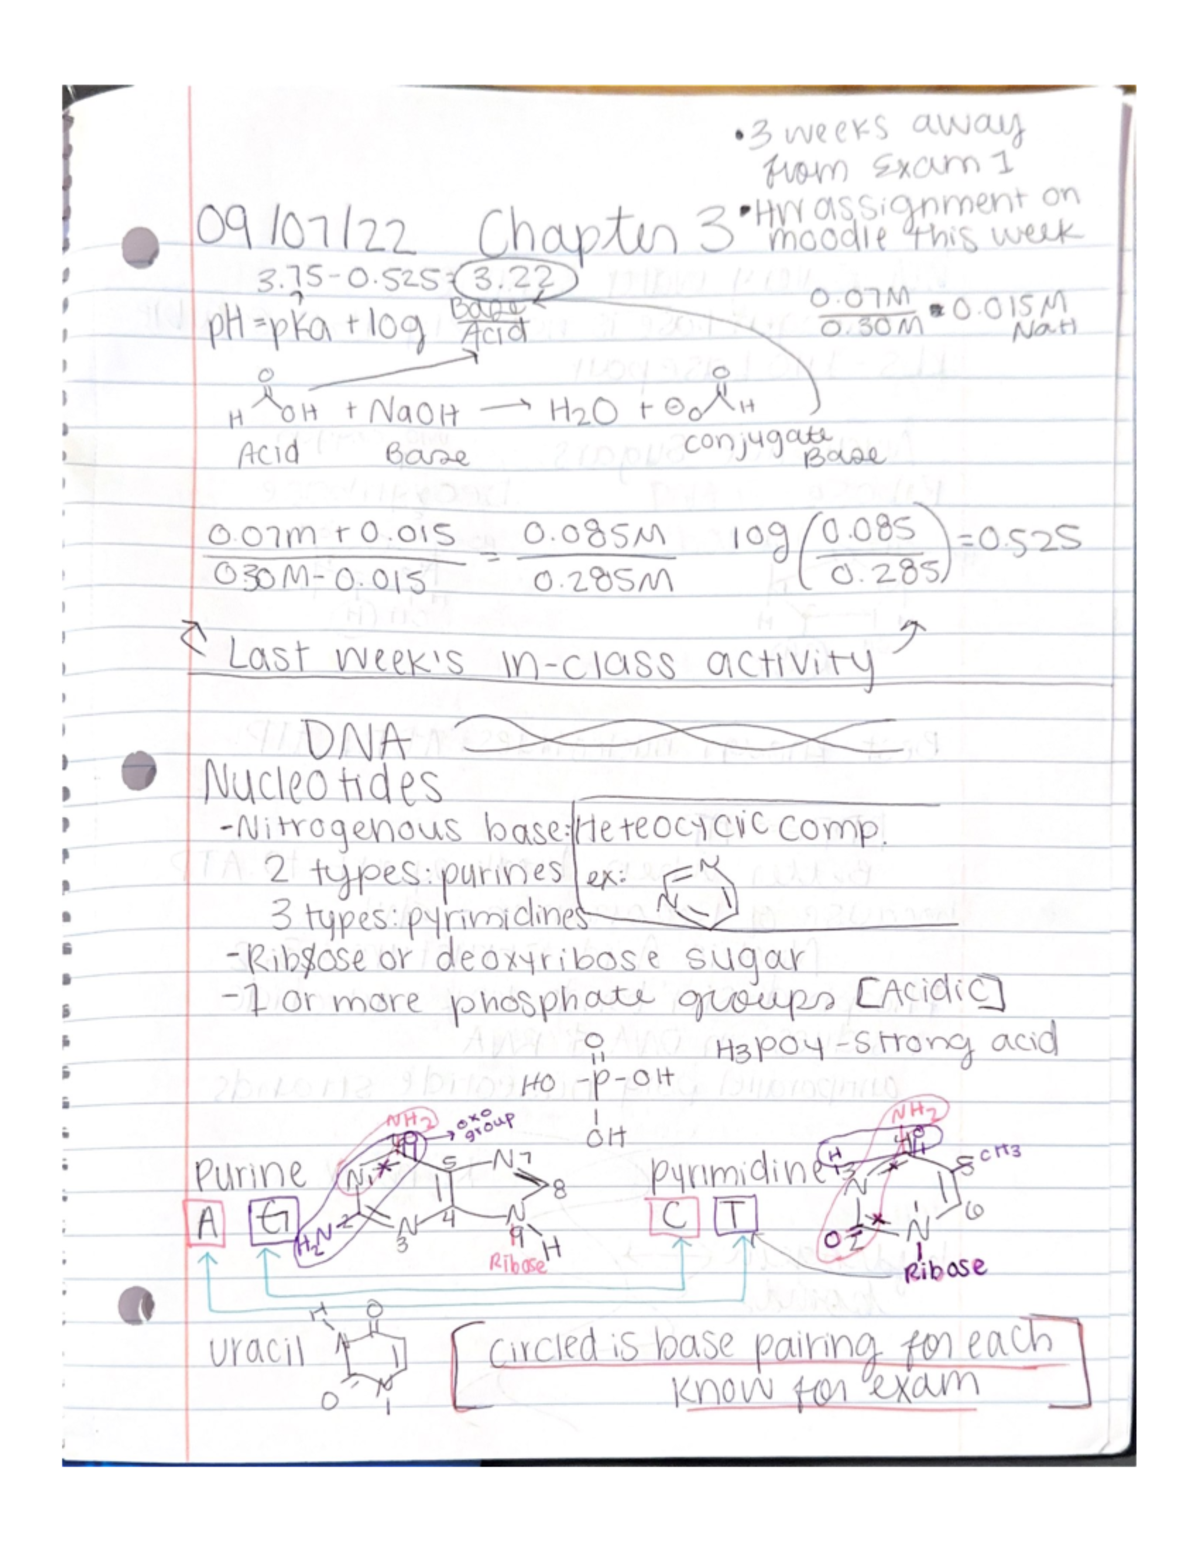 •3 weeks away
from Exam 1
•HW assignment on
moodle this week
09/07/22 Chapter 3
3.75-0.525=3.22
pH=pKa+log Base/Acid
0.07M/0.30M • 0.015M
NaH
O
H OH + NaOH → H2O + ⊖O H
O
Acid Base conjugate
Base
0.07M+0.015/030M-0.015 = 0.085M/0.285M log(0.085/0.285)=0.525
Last week's in-class activity
DNA
Nucleotides
-Nitrogenous base: Heteocyclic comp.
2 types: purines ex: N N
3 types: pyrimidines
-Ribose or deoxyribose sugar
-1 or more phosphate groups [Acidic]
O H3PO4-strong acid
HO-P-OH
OH
NH2 oxo
group NH2
Purine N1 5 N7 8 Pyrimidine H 3 4 5 CH3
A G H2N 2 N 3 4 N 9 H C T N O 2 N 6
Ribose Ribose
H O
uracil N
O N
[circled is base pairing for each
know for exam]